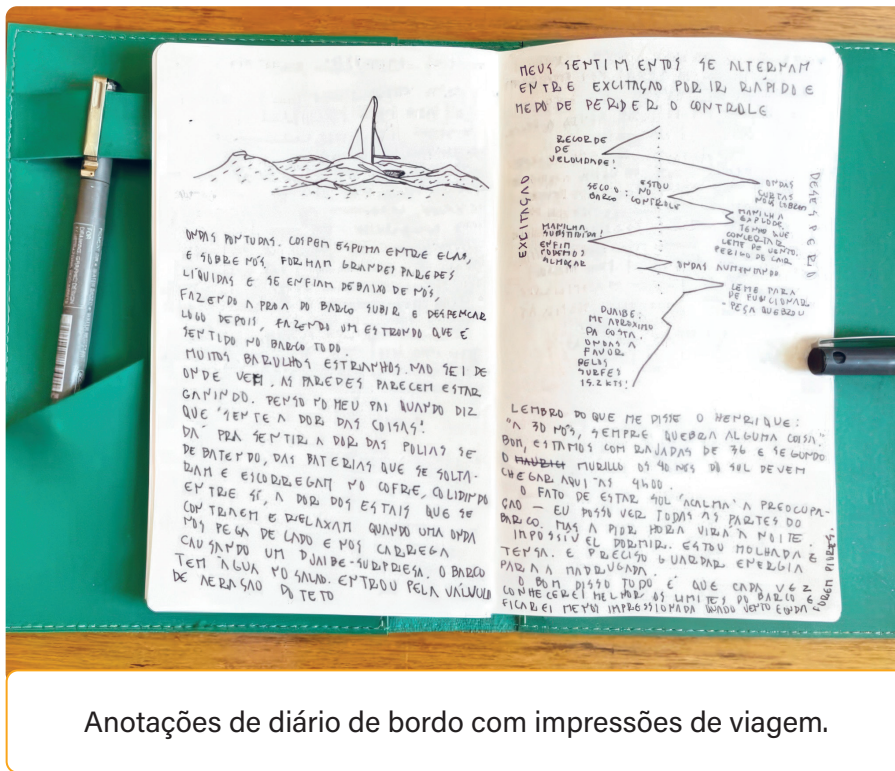 ONDAS PONTUDAS. COSPEM ESPUMA ENTRE ELAS,
E SOBRE NÓS. FORMAM GRANDES PAREDES
LÍQUIDAS E SE ENFIAM DEBAIXO DE NÓS,
FAZENDO A PROA DO BARCO SUBIR E DESPENCAR
LOGO DEPOIS, FAZENDO UM ESTRONDO QUE É
SENTIDO NO BARCO TODO.
MUITOS BARULHOS ESTRANHOS. NÃO SEI DE
ONDE VEM. AS PAREDES PARECEM ESTAR
GANINDO. PENSO NO MEU PAI QUANDO DIZ
QUE "SENTE A DOR DAS COISAS".
DÁ PRA SENTIR A DOR DAS POLIAS SE
DEBATENDO, DAS BATERIAS QUE SE SOLTA-
RAM E ESCORREGAM NO COFRE, COLIDINDO
ENTRE SÍ, A DOR DOS ESTAIS QUE SE
CONTRAEM E RELAXAM QUANDO UMA ONDA
NOS PEGA DE LADO E NOS CARREGA
CAUSANDO UM DJAIBE-SURPRESA. O BARCO
TEM ÁGUA NO SALÃO. ENTROU PELA VÁLVULA
DE AERAÇÃO DO TETO
MEUS SENTIMENTOS SE ALTERNAM
ENTRE EXCITAÇÃO POR IR RÁPIDO E
MEDO DE PERDER O CONTROLE
EXCITAÇÃO
DESESPERO
RECORDE
DE
VELOCIDADE!
ONDAS
CURTAS
NOS COBREM
ESTOU
SECO O : NO
BARCO CONTROLE
MANILHA
EXPLODE,
TENHO QUE
CONSERTAR
LEME DE VENTO.
PERIGO DE CAIR
MANILHA
SUBSTITUÍDA!
ENFIM
PODEMOS
ALMOÇAR
ONDAS AUMENTANDO
LEME PARA
DE FUNCIONAR
- PEÇA QUEBROU
DJAIBE:
ME APROXIMO
DA COSTA.
ONDAS A
FAVOR
PELOS
SURFES
15.2 KTS!
LEMBRO DO QUE ME DISSE O HENRIQUE:
"A 30 NÓS, SEMPRE QUEBRA ALGUMA COISA."
BOM, ESTAMOS COM RAJADAS DE 36 E SEGUNDO
O MURILLO OS 40 NÓS DO SUL DEVEM
CHEGAR AQUI ÀS 4h00.
O FATO DE ESTAR SOL "ACALMA" A PREOCUPA-
ÇÃO — EU POSSO VER TODAS AS PARTES DO
BARCO. MAS A PIOR HORA VIRÁ À NOITE.
IMPOSSÍVEL DORMIR. ESTOU MOLHADA E
TENSA. E PRECISO GUARDAR ENERGIA
PARA A MADRUGADA.
O BOM DISSO TUDO É QUE CADA VEZ
CONHECEREI MELHOR OS LIMITES DO BARCO E
FICAREI MENOS IMPRESSIONADA QUANDO VENTO E ONDA FOREM PIORES.
Anotações de diário de bordo com impressões de viagem.